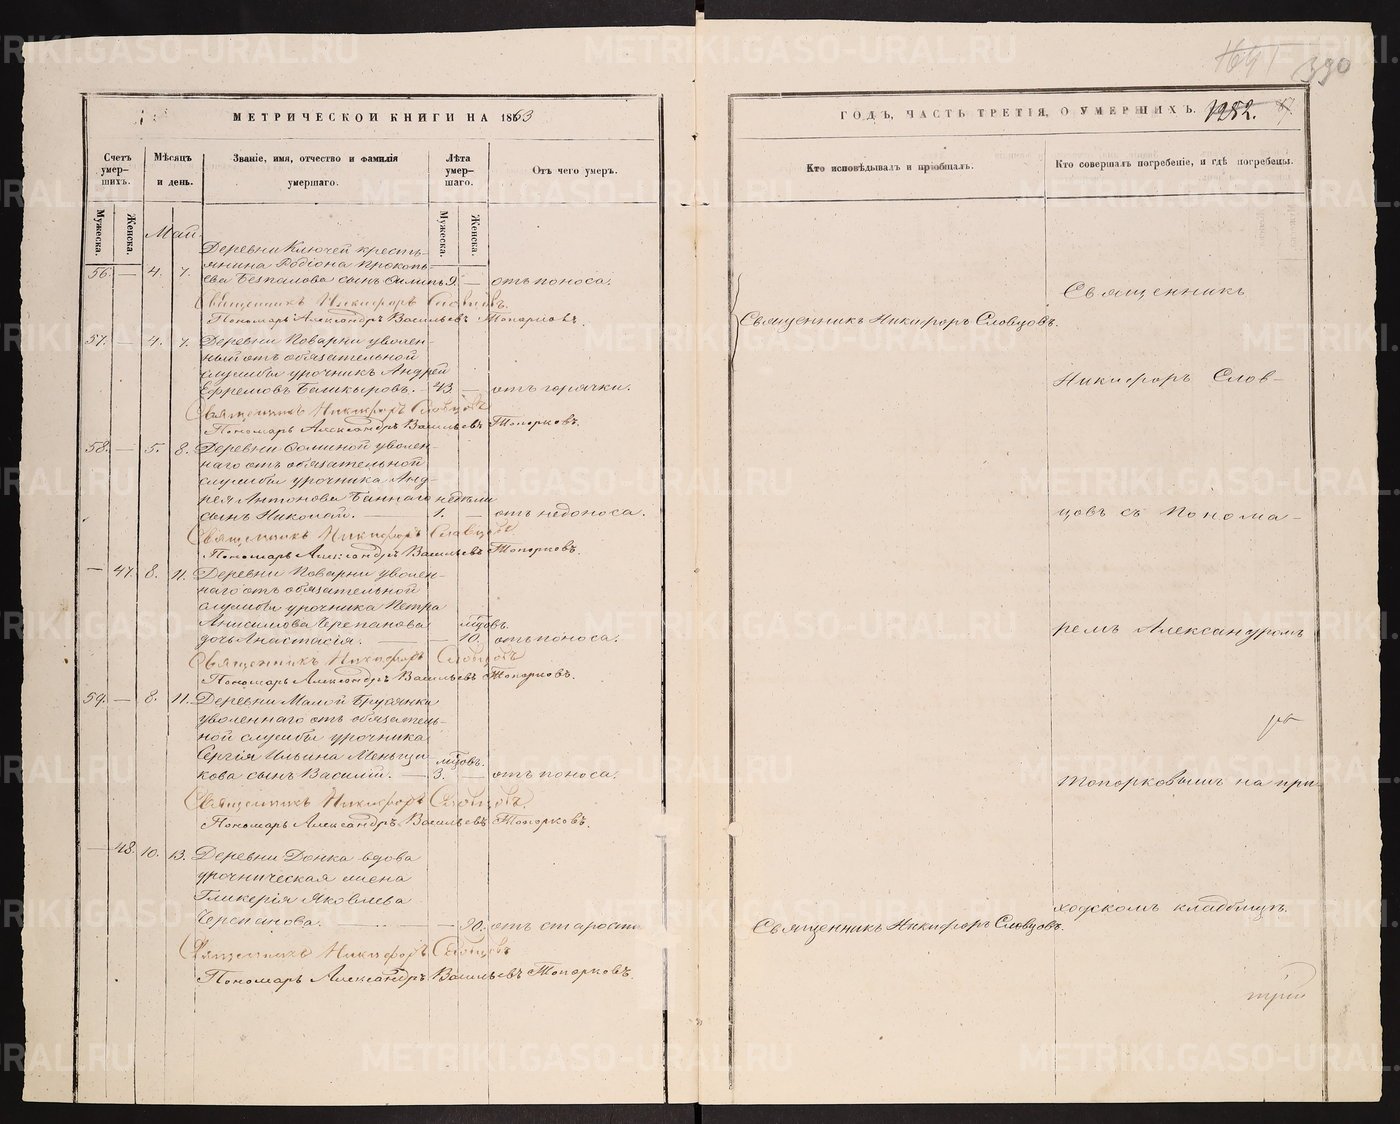 МЕТРИЧЕСКОЙ КНИГИ НА 1863
Счетъ умер-шихъ.
Мужеска.
Женска.
Мѣсяцъ и день.
Званіе, имя, отчество и фамилія умершаго.
Лѣта умер-шаго.
Мужеска.
Женска.
Отъ чего умеръ.
Май
Деревни Ключей кресть-
янина Родіона Прокопь-
56. — 4. 7. ева Безпалова сынъ Филипъ 9. — отъ поноса.
Священникъ Никифоръ Словцовъ.
Пономарь Александръ Васильевъ Топорковъ.
57. — 4. 7. Деревни Поварни уволен-
ный отъ обязательной
службы урочникъ Андрей
Ефремовъ Башкыровъ. — 43 — отъ горячки.
Священникъ Никифоръ Словцовъ
Пономарь Александръ Васильевъ Топорковъ.
58. — 5. 8. Деревни Соминой уволен-
наго отъ обязательной
службы урочника Анд-
рея Антонова Баннаго недѣли
сынъ Николай. — 1. — отъ недоноса.
Священникъ Никифоръ Словцовъ
Пономарь Александръ Васильевъ Топорковъ.
— 47. 8. 11. Деревни Поварни уволен-
наго отъ обязательной
службы урочника Петра
Анисимова Черепанова мѣсцовъ.
дочь Анастасія. — — 10. отъ поноса.
Священникъ Никифоръ Словцовъ
Пономарь Александръ Васильевъ Топорковъ.
59. — 8. 11. Деревни Малой Брусянки
уволеннаго отъ обязатель-
ной службы урочника
Сергія Ильина Меньщи- мѣсцовъ.
кова сынъ Василій. — 3. — отъ поноса.
Священникъ Никифоръ Словцовъ.
Пономарь Александръ Васильевъ Топорковъ.
— 48. 10. 13. Деревни Донка вдова
урочническая жена
Гликерія Яковлева
Черепанова. — 90. отъ старости
Священникъ Никифоръ Словцовъ
Пономарь Александръ Васильевъ Топорковъ.
1641
390
ГОДЪ, ЧАСТЬ ТРЕТІЯ, О УМЕРШИХЪ. 1252.
Кто исповѣдывалъ и пріобщалъ.
Кто совершалъ погребеніе, и гдѣ погребены.
Священникъ
Священникъ Никифоръ Словцовъ.
Никифоръ Слов-
цовъ съ Понома-
ремъ Александромъ
Топорковымъ на при-
ходскомъ кладбищѣ.
Священникъ Никифоръ Словцовъ.
METRIKI.GASO-URAL.RU